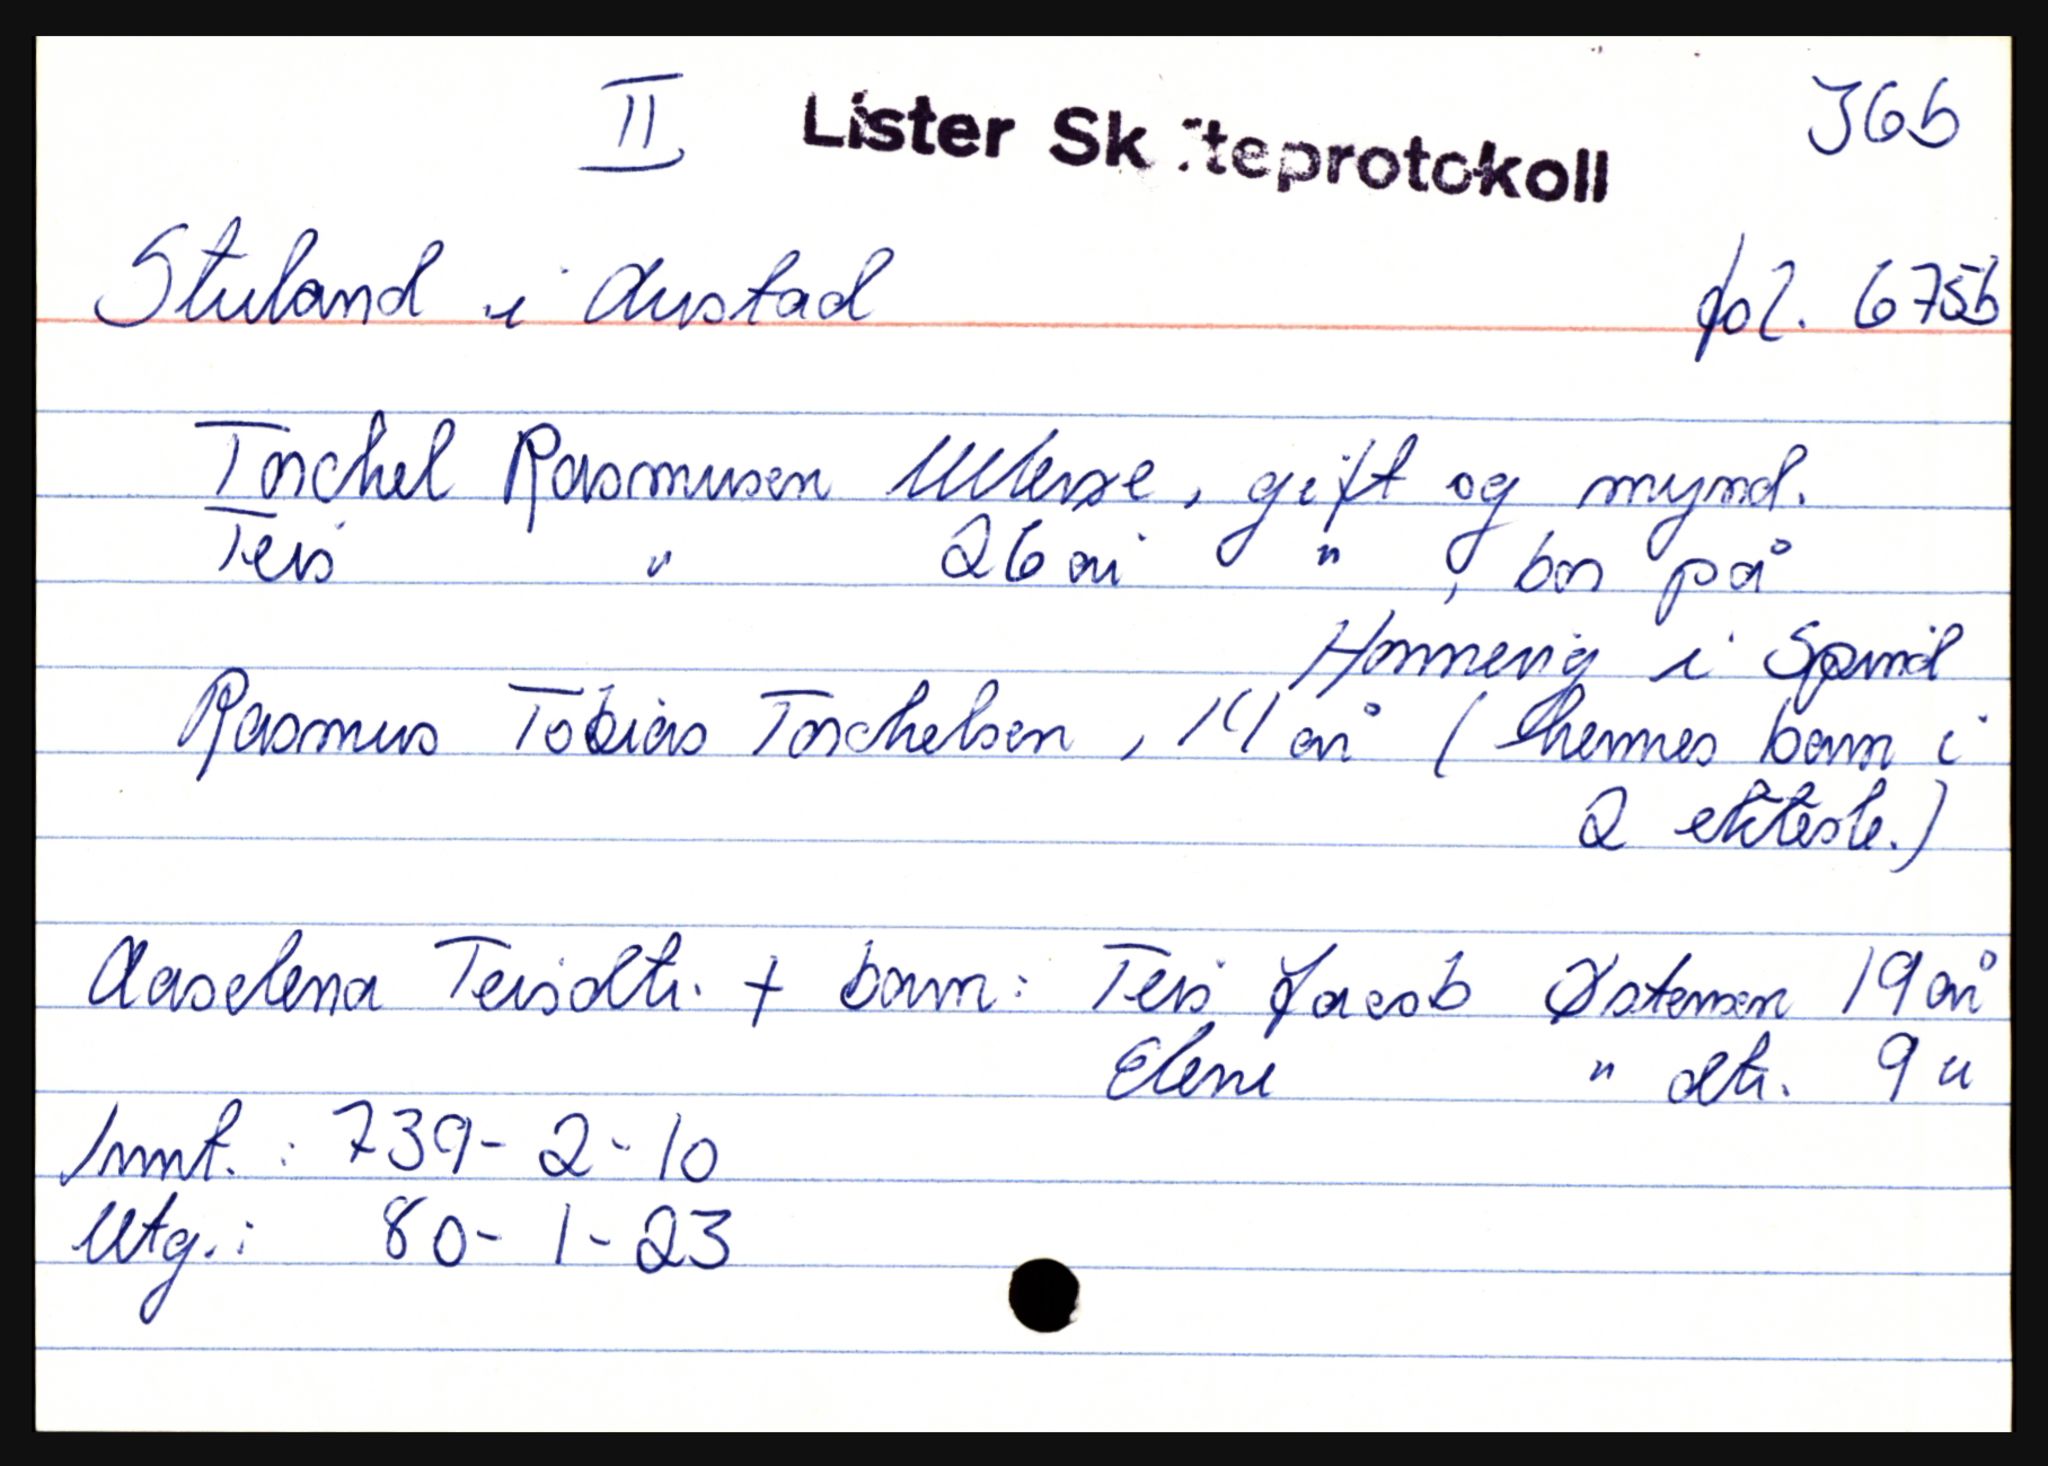 II Lister Skifteprotokoll J6b
Stuland i Austad fol. 675b
Torchel Rasmusen Ulleroe, gift og mynd.
Teis " 26 år " , bor på
Hornevig i Spind
Rasmus Tobias Torchelsen, 14 år (hennes barn i
2 ektesk.)
Aaselena Teisdtr. + barn: Teis Jacob Østensen 19 år
Elene " dtr. 9 "
Innt.: 739-2-10
Utg.: 80-1-23